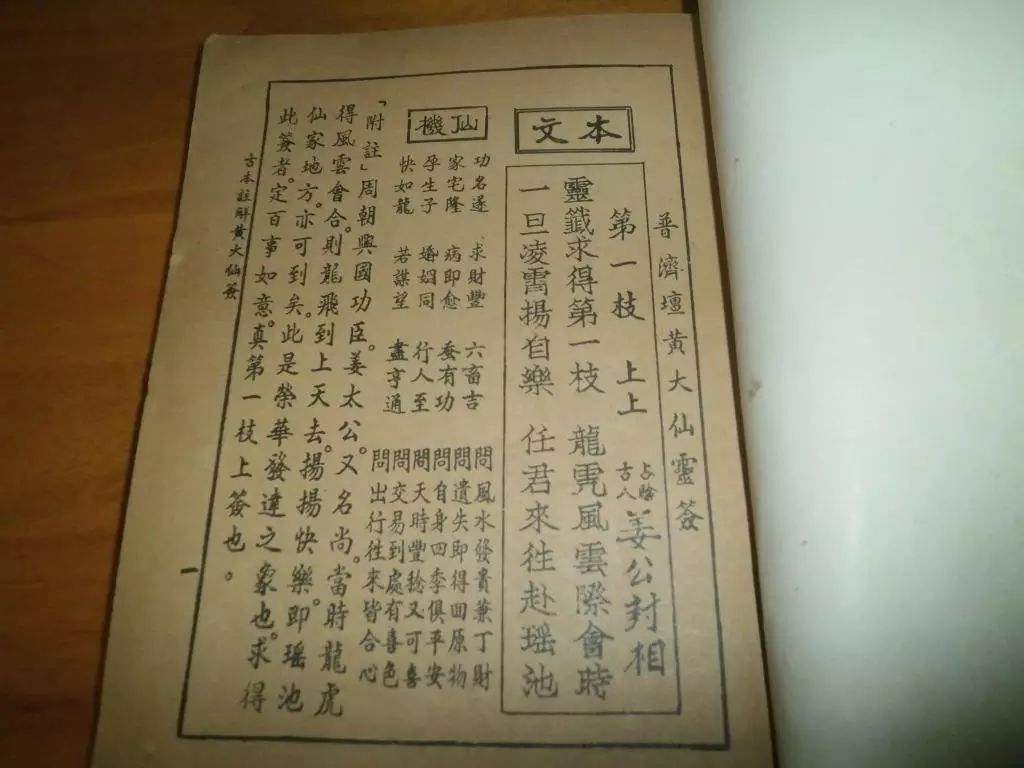 普濟壇黃大仙靈簽
本文
第一枝 上上 占驗古人 姜公封相
靈籤求得第一枝 龍虎風雲際會時
一旦凌霄揚自樂 任君來往赴瑤池
仙機
功名遂 求財豐 六畜吉 問風水發貴兼丁財
家宅隆 病即愈 蚕有功 問遺失即得回原物
孕生子 婚姻同 行人至 問自身四季俱平安
快如龍 若謀望 盡亨通 問天時豐稔又可喜
問交易到處有喜色
問出行往來皆合心
「附註」周朝興國功臣。姜太公。又名尚。當時龍虎
得風雲會合。則龍飛到上天去。揚揚快樂。即瑤池
仙家地方。亦可到矣。此是榮華發達之象也。求得
此簽者。定百事如意。真第一枝上簽也。
古本註解黃大仙簽
一